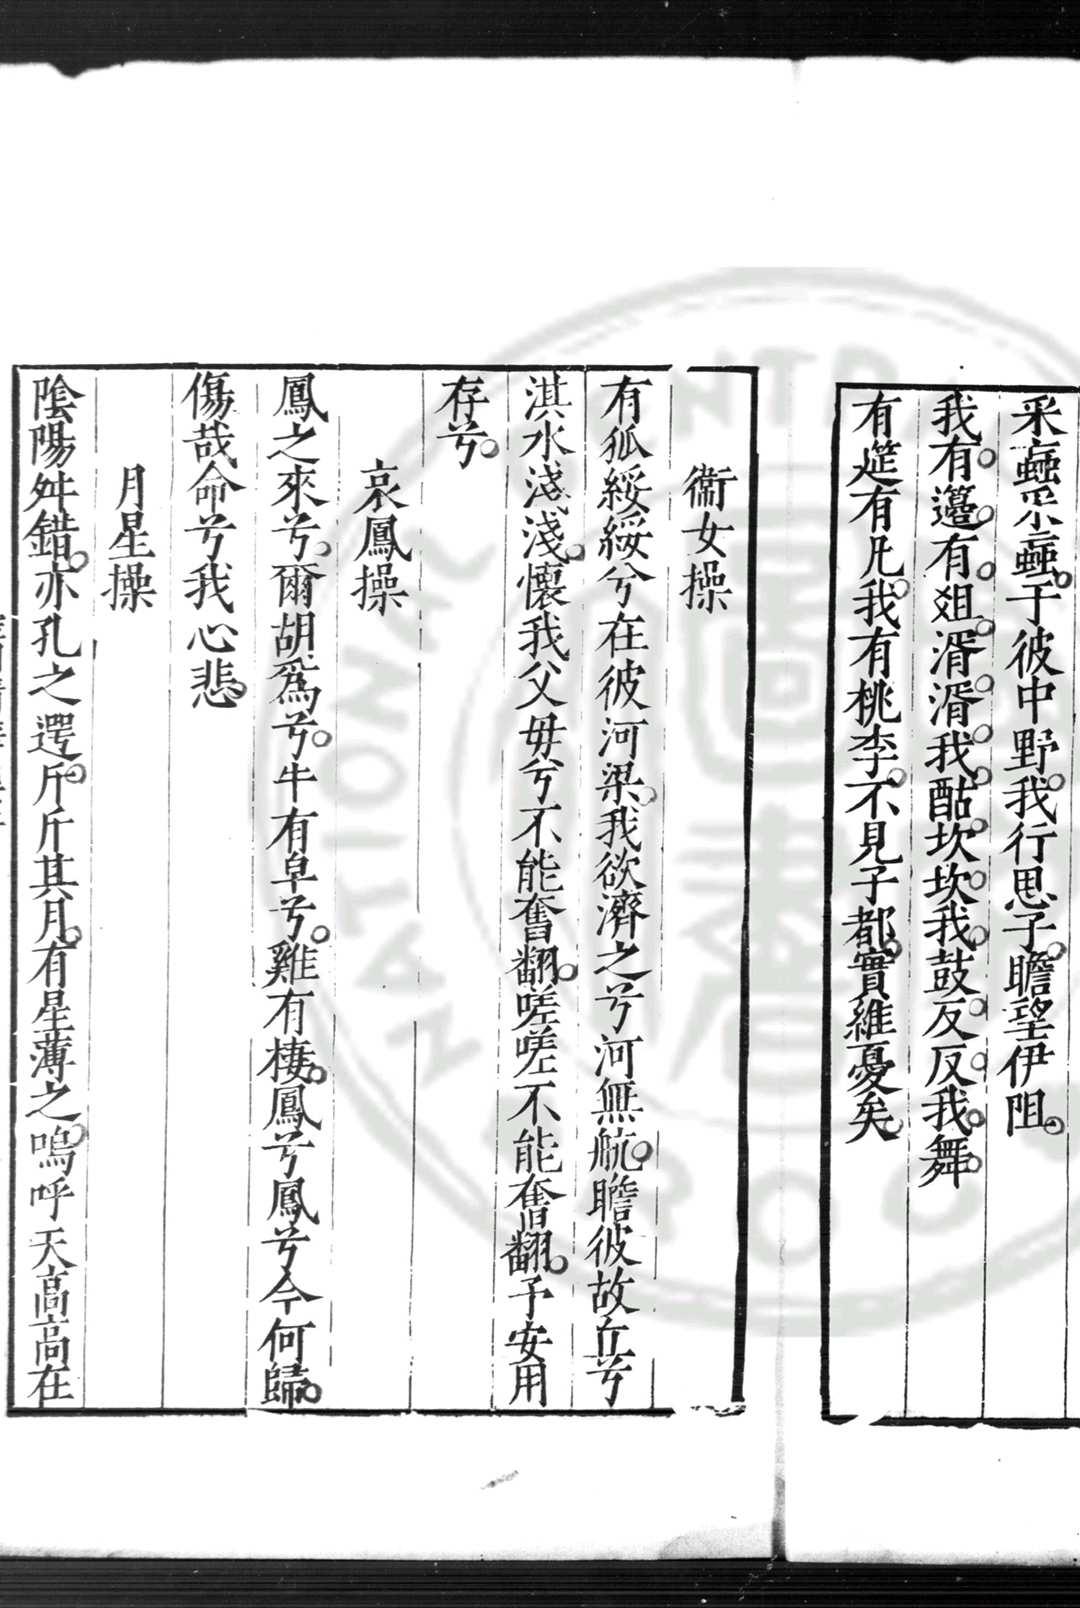 采蝱采蝱于彼中野我行思子瞻望伊阻
我有籩有俎湑湑我酤坎坎我鼓反反我舞
有筵有几我有桃李不見子都實維憂矣
衞女操
有狐綏綏兮在彼河梁我欲濟之兮河無航瞻彼故丘兮
淇水淺淺懷我父毋兮不能奮翻嗟嗟不能奮翻予安用
存兮
哀鳳操
鳳之來兮爾胡爲兮牛有皁兮雞有棲鳳兮鳳兮今何歸
傷哉命兮我心悲
月星操
陰陽舛錯亦孔之遌斤斤其月有星薄之嗚呼天高高在